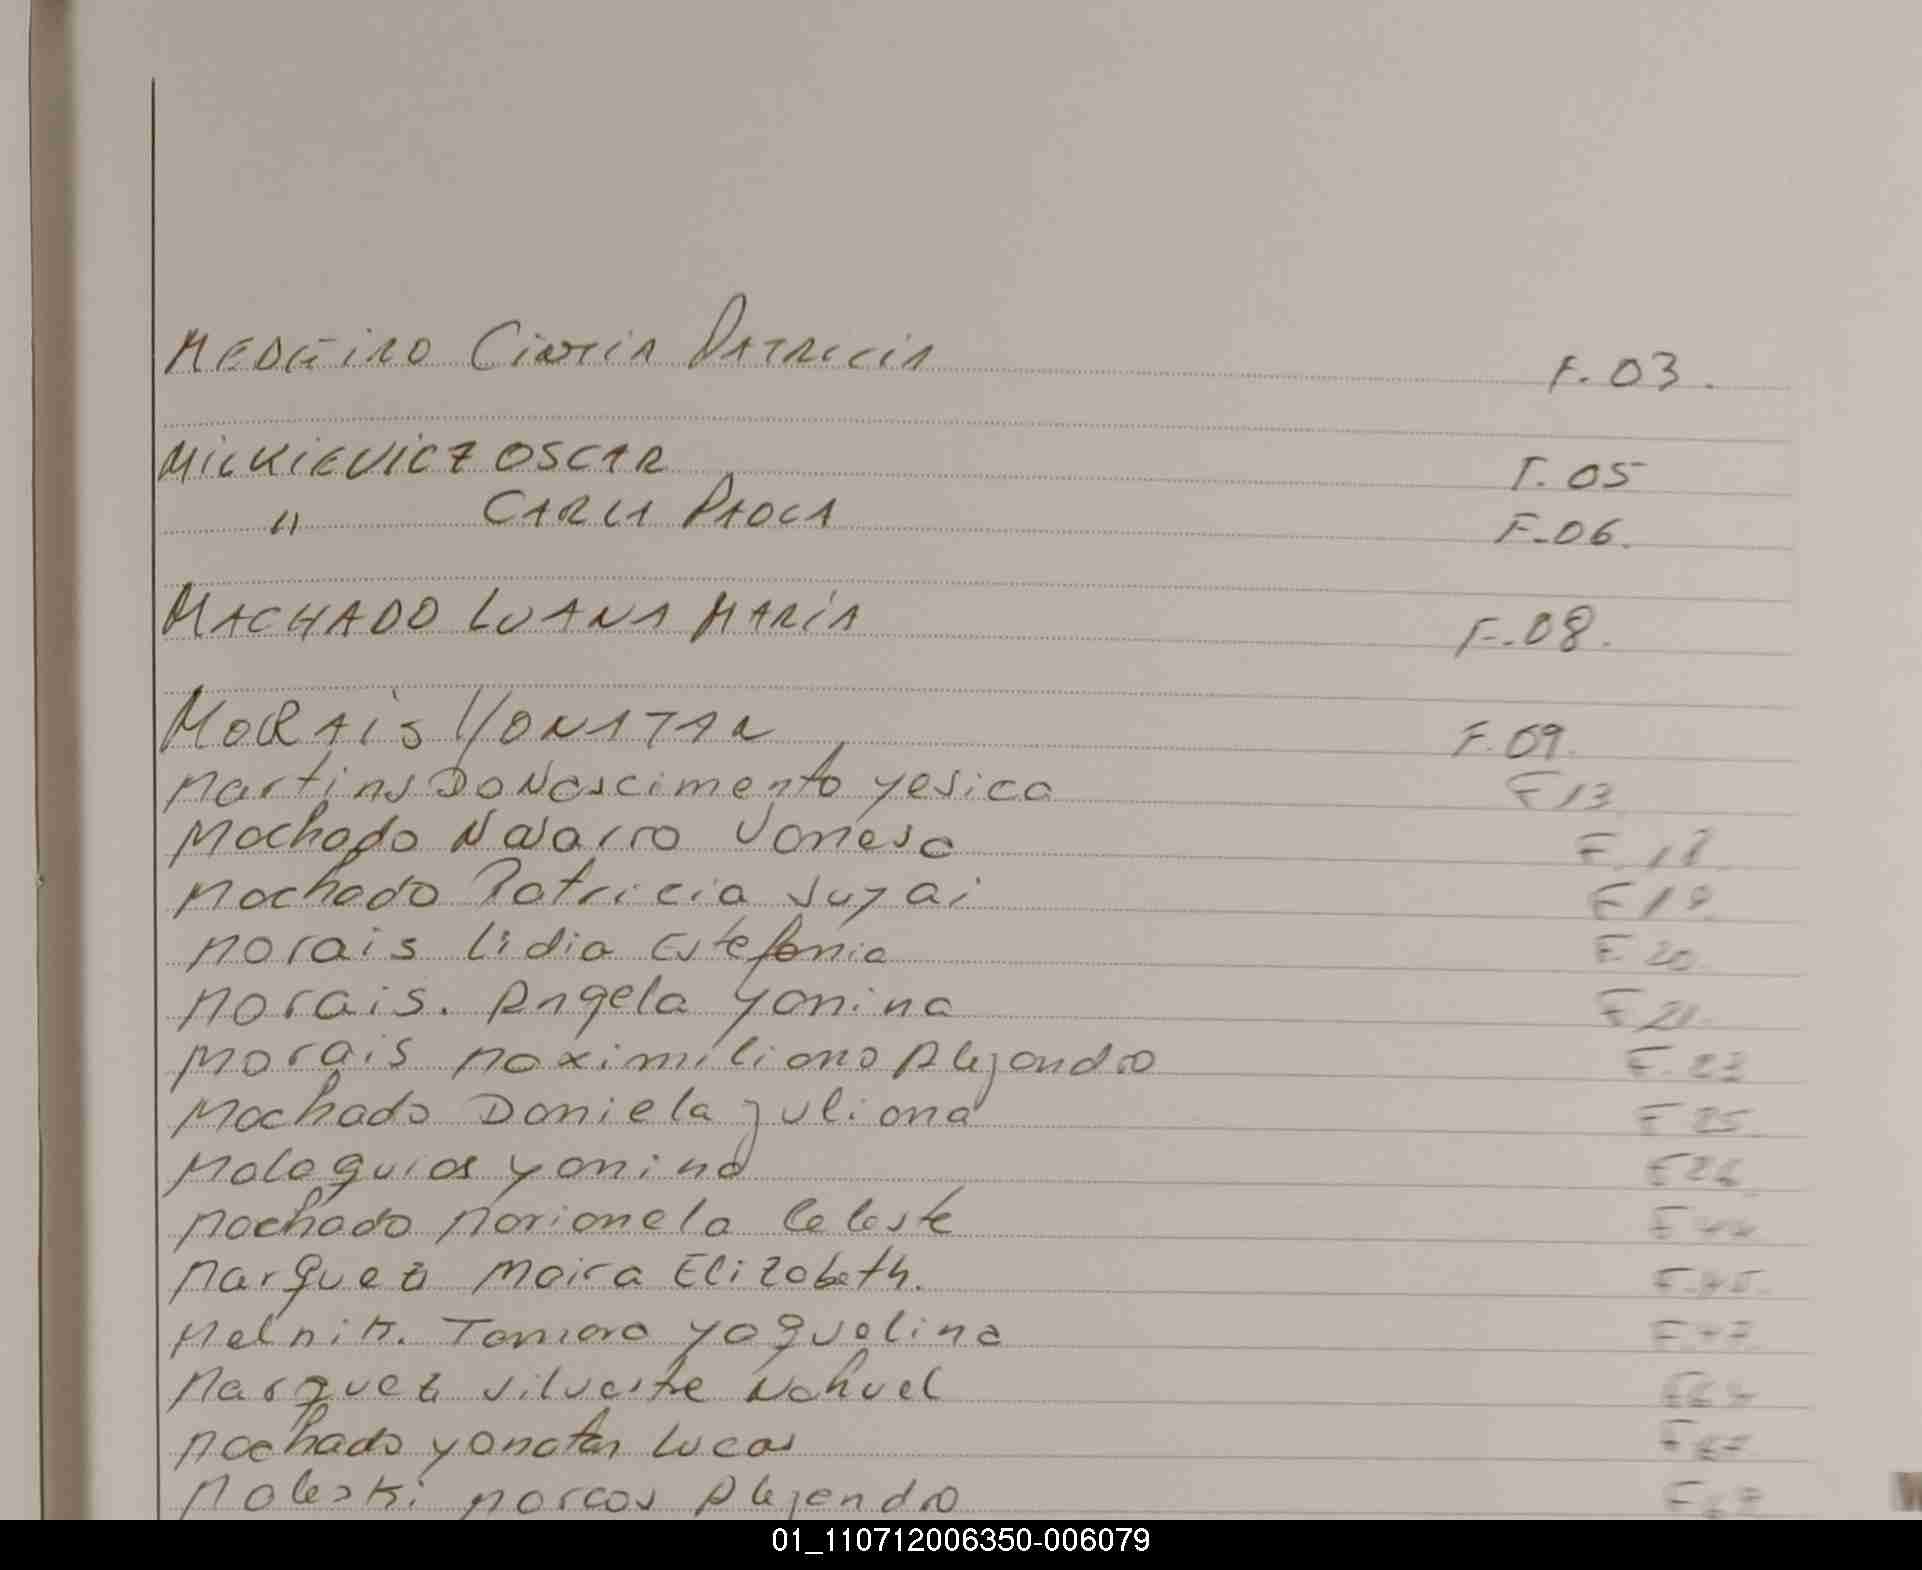 MEDEIRO CINTIA PATRICIA F. 03.
MICKIEVICZ OSCAR F. 05
" CARLA PAOLA F-06.
MACHADO LUANA MARÍA F-.08.
MORAIS YONATAN F. 09.
Martins Do Nascimento yesica F 13
Machado Navarro Vanesa F. 18
Machado Patricia Suyai F 19.
Morais Lidia Estefania F 20.
Morais. Angela Yanina F 21.
Morais Maximiliano Alejandro F. 23
Machado Daniela Juliana F 25.
Malaguias yanina F 26
Machado Marianela Celeste F 44
Marquez Maira Elizabeth. F. 45.
Melnik. Tamara Yaquelina F 47.
Marquez Silvestre Nahuel
Machado yonatan Lucas
Maleski Marcos Alejandro
01_110712006350-006079